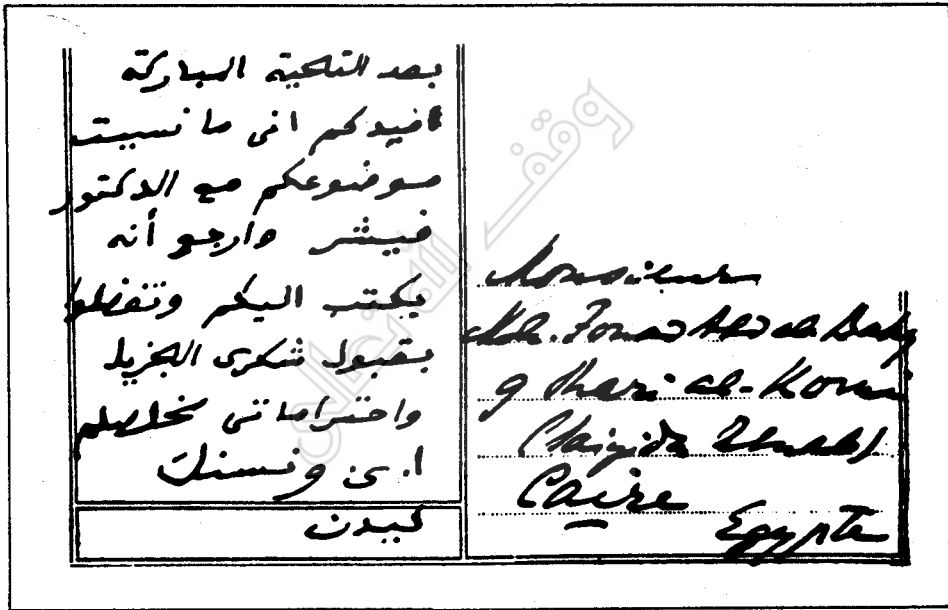 بعد التحية المباركة
افيدكم انى ما نسيت
موضوعكم مع الدكتور
فيشر وارجو أنه
يكتب اليكم وتفضلوا
بقبول شكرى الجزيل
واحتراماتى مخلصكم
ا. ى ونسنك
ليدن
Monsieur
Moh. Fouad Abd al-Baky
9 Shari al-Komi
(Saiyida Zenab)
Caire
Egypte
وقف